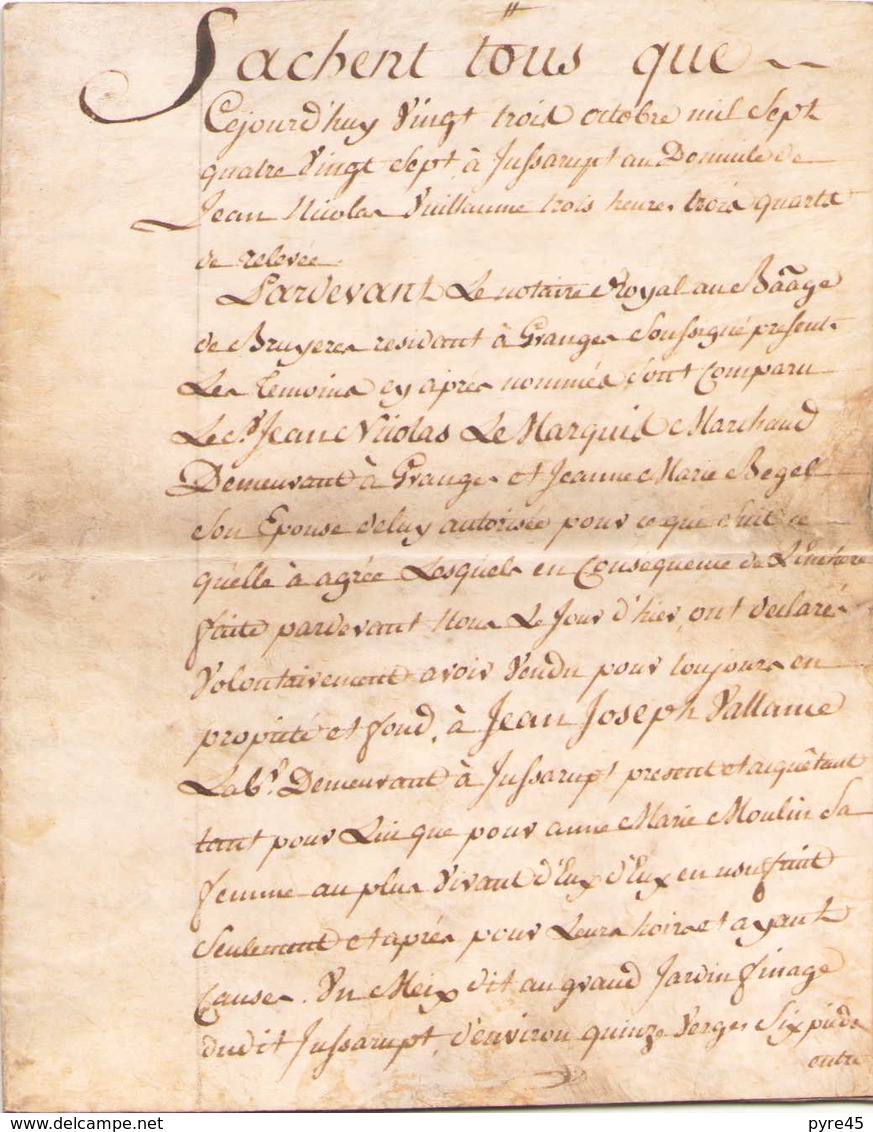 Sachent tous que
Cejourd'huy Vingt trois octobre mil Sept
quatre Vingt Sept à Jussarupt au Domicile de
Jean Nicolas Vuillaume trois heures trois quarts
de relevée
Pardevant Le notaire Royal au Baãge
de Bruyeres residant à Granges Soussigné present
Les temoins cy après nommés sont Comparu
Le Sr. Jean Nicolas Le Marquis Marchand
Demeurant à Granges et Jeanne Marie Begel
Son Epouse deluy autorisée pour ce que Suit ce
qu'elle à agrée Lesquels en Conséquence de L'Enchere
faite pardevant Nous Le Jour d'hier, ont declaré
Volontairement avoir Vendu pour toujours en
proprieté et fond, à Jean Joseph Vallance
Labr. Demeurant à Jussarupt present et acquêtant
tant pour Lui que pour anne Marie Moulin Sa
femme au plus Vivant d'Eux d'Eux en usufruit
Seulement et après pour Leurs hoirs et ayant
Causes. Un Meix dit au grand Jardin finage
dudit Jussarupt, d'environ quinze Verges Six pieds
entre
delcampe.net
pyre45